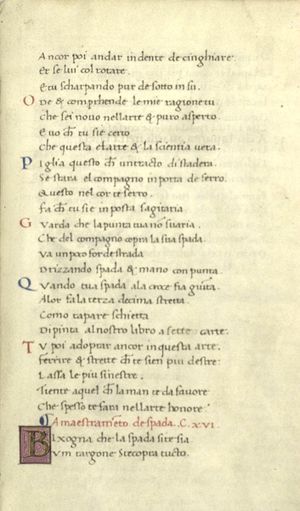 Ancor poi andar in dente de cinghiare.
Et se lui col rotare.
E tu scharpando pur de sotto in su.
Ode & comprende le mie ragione tu
Che sei novo nellarte & puro asperto.
E vo ch̄ tu sie certo
Che questa e larte & la scientia vera.
Piglia questo ch̄ un tracto di stadera.
Se stara el compagno in porta de ferro.
Questo nel cor te serro.
Fa ch̄ tu sie in posta sagitaria
Guarda che la punta tua nō si varia.
Che del compagno copra la sua spada.
Va un poco for de strada
Drizzando spada & mano con punta.
Quando tua spada ala croce fia giunta.
Alor fa la terza decima stretta.
Como tapare schietta
Dipinta al nostro libro a sette carte.
Tu poi adoptar ancor in questa arte.
Ferrire & strette ch̄ te sien piu destre:
Lassa le piu sinestre.
Tiente aquel ch̄ la man te da favore
Che spesso te fara nellarte honore
Amaestramēto de spada. C. XVI.
Bixogna che la spada si te sia
Vm targone ste copra tucto.